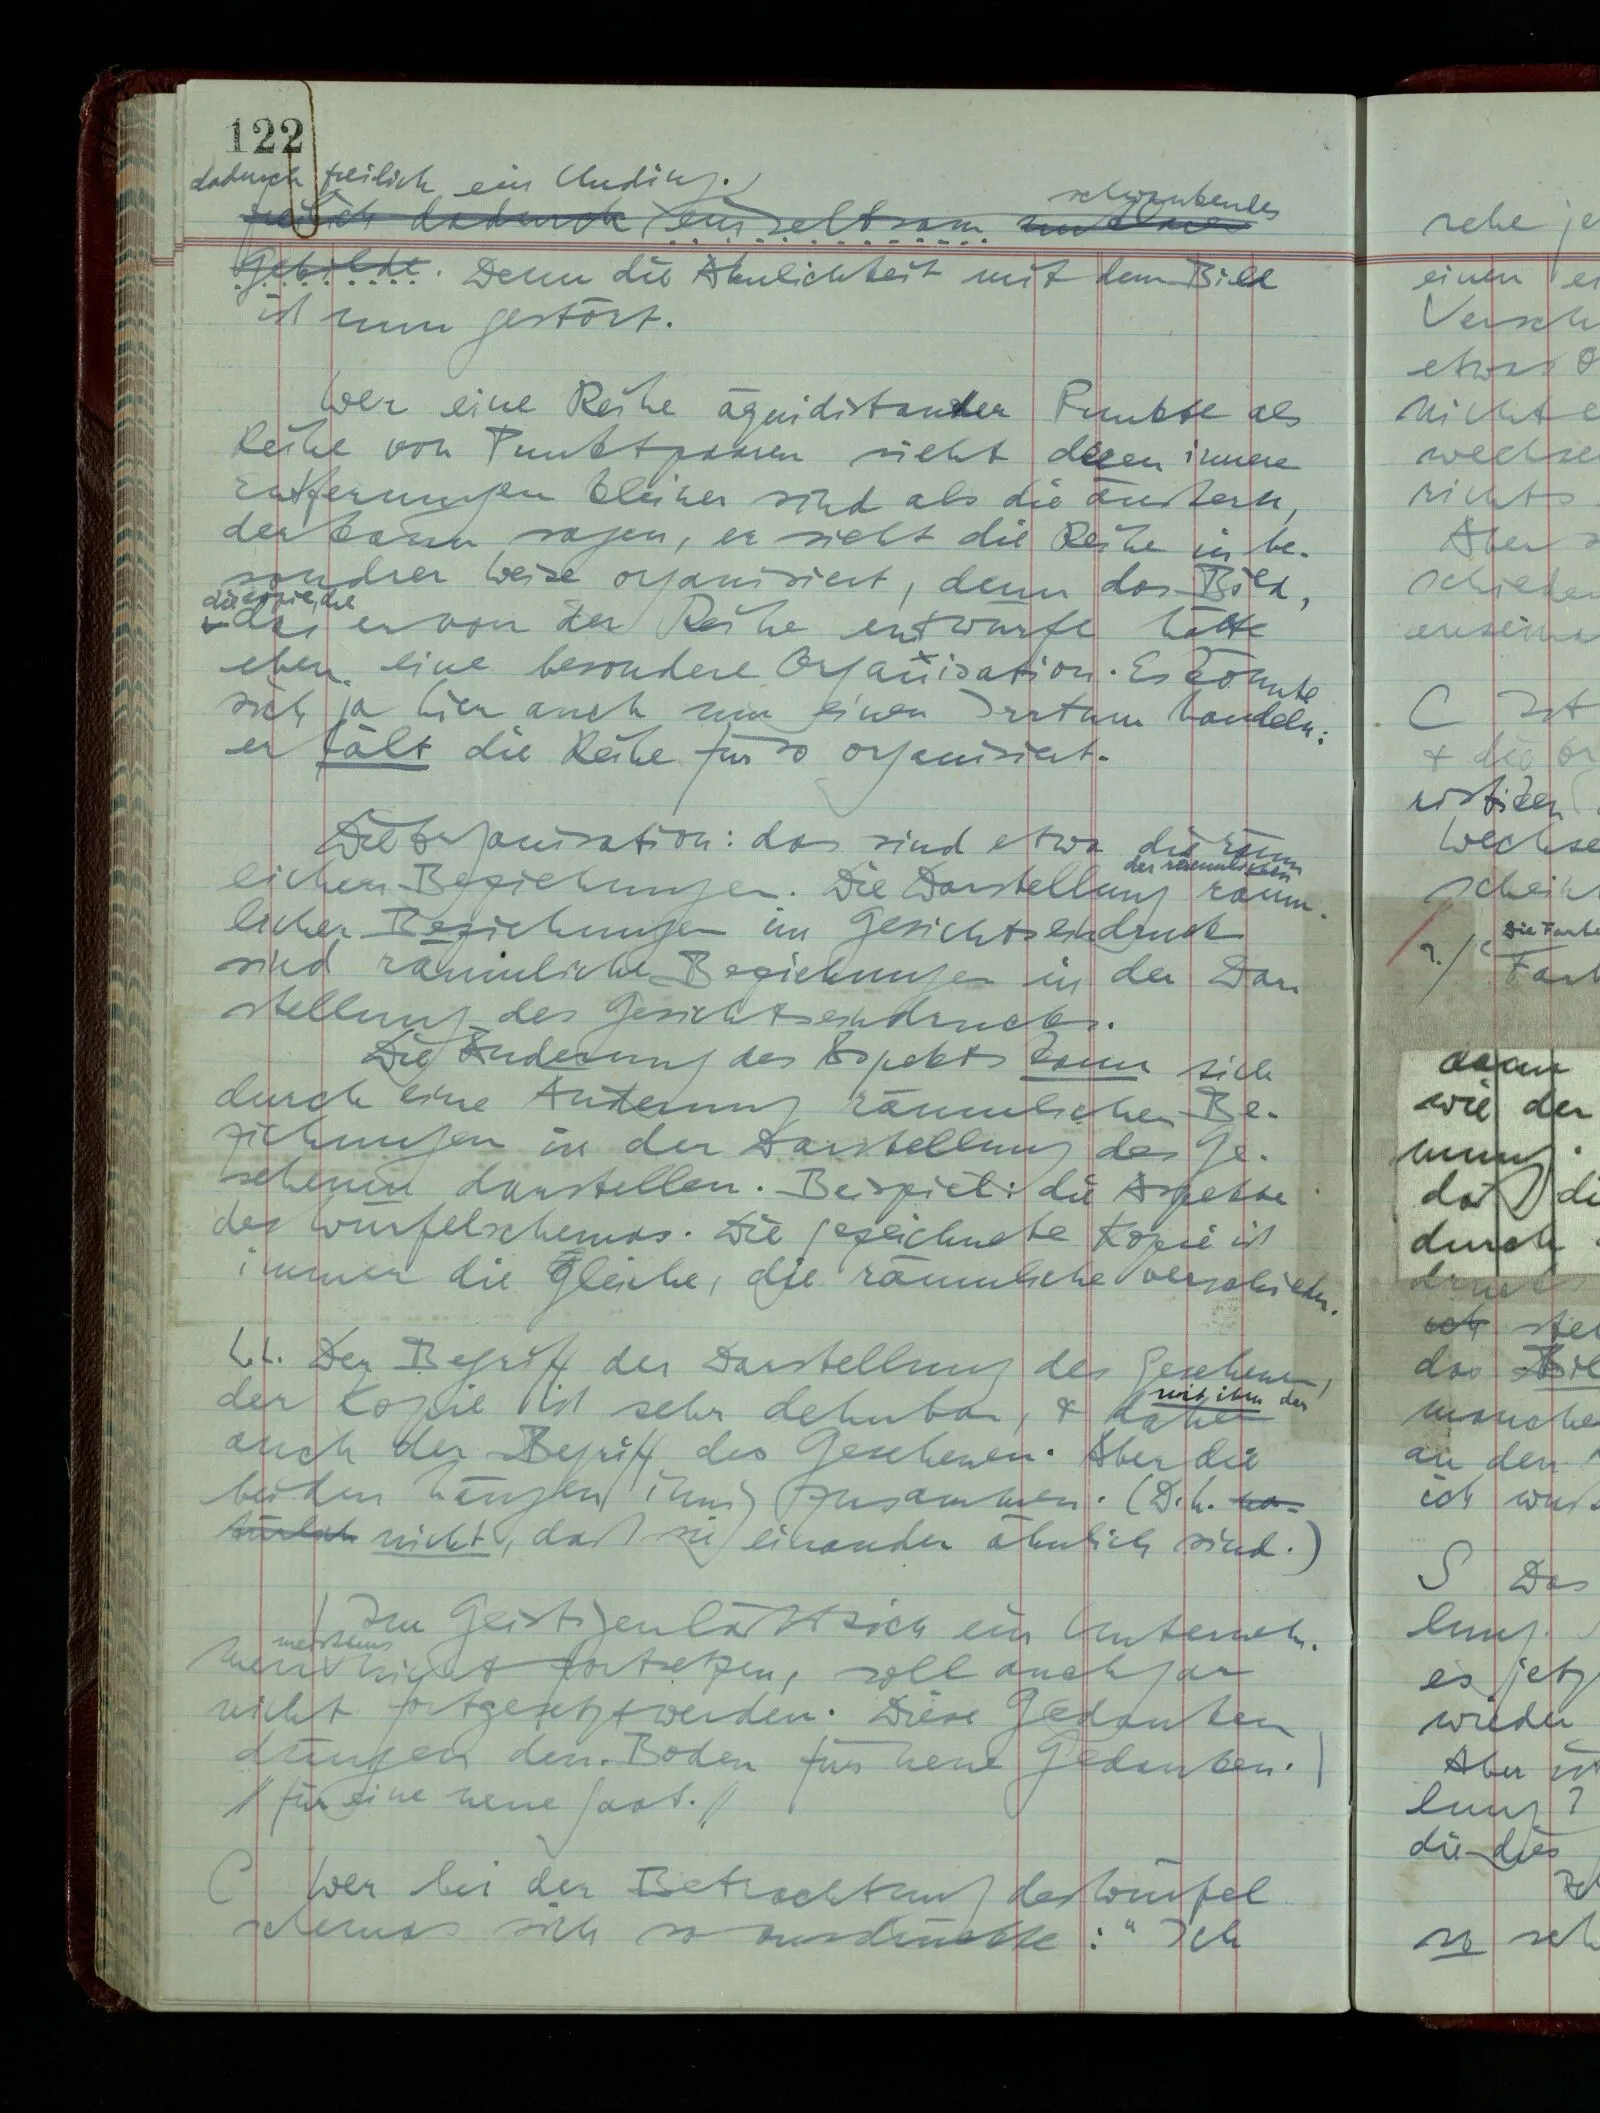 122
dadurch freilich ein Unding.
freilich dadurch ein seltsam schwankendes
Gebilde. Denn die Ähnlichkeit mit dem Bild
ist nun gestört.
Wer eine Reihe äquidistanter Punkte als
Reihe von Punktpaaren sieht deren innere
Entfernungen kleiner sind als die äußern,
der kann sagen, er sieht die Reihe in be-
sondrer Weise organisiert, denn das Bild,
die Kopie, die
das er von der Reihe entwürfe hätte
eben eine besondere Organisation. Es könnte
sich ja hier auch um einen Irrtum handeln:
er hält die Reihe für so organisiert.
Die Organisation: das sind etwa die räum
lichen Beziehungen. Die Darstellung räum-
der räumlichen
licher Beziehungen im Gesichtseindruck
sind räumliche Beziehungen in der Dar
stellung des Gesichtseindrucks.
Die Änderung des Aspekts kann sich
durch eine Änderung räumlicher Be-
ziehungen in der Darstellung des Ge-
sehenen darstellen. Beispiel: die Aspekte
des Würfelschemas. Die gezeichnete Kopie ist
immer die Gleiche, die räumliche verschieden.
Der Begriff der Darstellung des Gesehenen,
der Kopie ist sehr dehnbar, & daher
mit ihm der
auch der Begriff des Gesehenen. Aber die
beiden hängen innig zusammen. (D.h. na-
türlich nicht, daß sie einander ähnlich sind.)
Im Geistigen läßt sich ein Unterneh-
meistens
men nicht fortsetzen, soll auch gar
nicht fortgesetzt werden. Diese Gedanken
düngen den Boden für neue Gedanken. |
// für eine neue Saat. //
C Wer bei der Betrachtung des Würfel
schemas sich so ausdrückte: "Ich
sehe
einen
Versch
etwas
nicht
wechse
nichts
Aber
schieden
C Ist
& die
Wechse
schein
Die Farbe
dann
wie der
nung.
daß die
durch
stel
das Bil
manche
an den
ich
S Das
lung.
es jetz
wieder
Aber ist
lung?
die dies
so seh